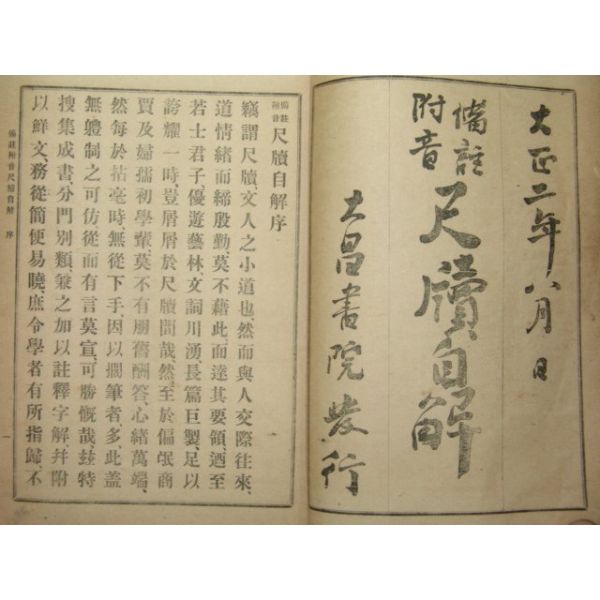 大正二年八月日
備註
附音
尺牘自解
大昌書院發行
備註
附音
尺牘自解序
竊謂尺牘、文人之小道也、然而與人交際往來、
道情緒而締殷勤、莫不藉此、而達其要領、迺至
若士君子、優遊藝林、文詞川湧、長篇巨製、足以
誇耀一時、豈屑屑於尺牘間哉、然至於偏氓商
賈及婦孺初學輩、莫不有朋舊酬答、心緒萬端、
然每於拈毫時、無從下手、因以擱筆者、多、此蓋
無體制之可仿從、而有言莫宣、可勝慨哉、玆特
搜集成書、分門別類、兼之加以註釋字解幷附
以鮮文、務從簡便易曉、庶令學者有所指歸、不
備註附音尺牘自解 序
一